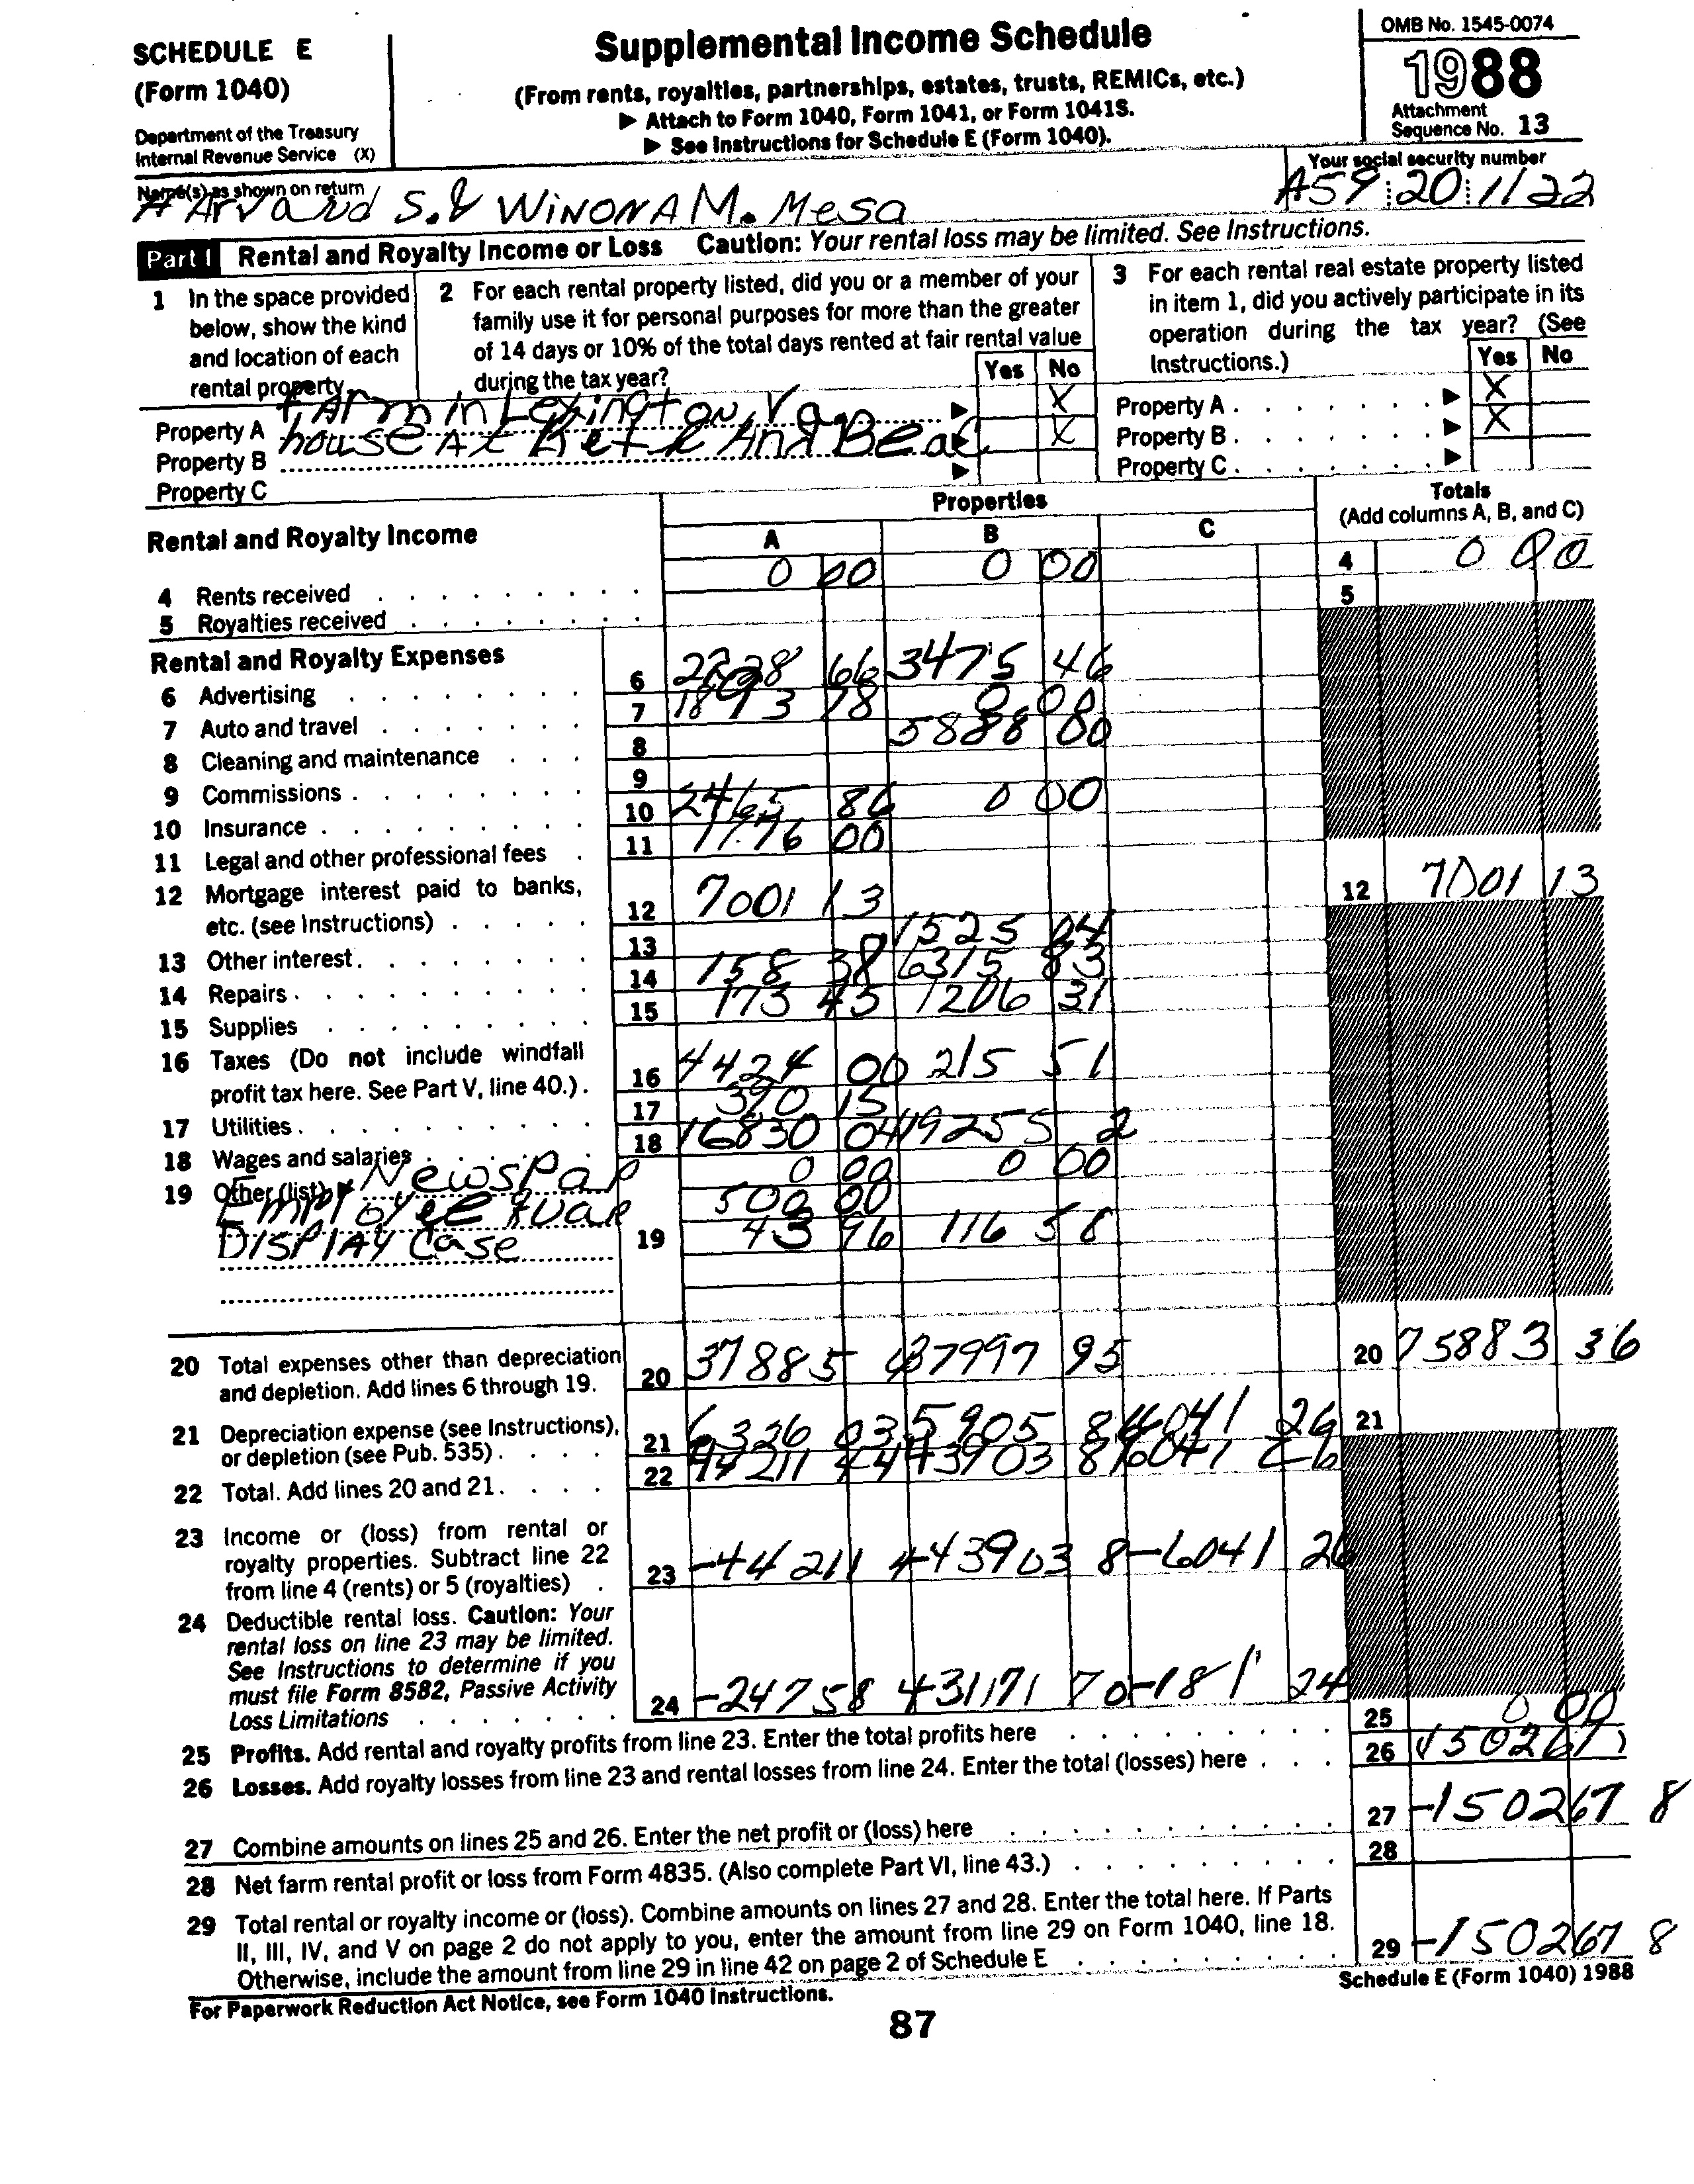 SCHEDULE E
(Form 1040)
Department of the Treasury
Internal Revenue Service (X)
Supplemental Income Schedule
(From rents, royalties, partnerships, estates, trusts, REMICs, etc.)
▶ Attach to Form 1040, Form 1041, or Form 1041S.
▶ See Instructions for Schedule E (Form 1040).
OMB No. 1545-0074
1988
Attachment
Sequence No. 13
Name(s) as shown on return
Your social security number
S. & WINONA M. Mesa
A59 20 1122
Part I Rental and Royalty Income or Loss Caution: Your rental loss may be limited. See Instructions.
1 In the space provided below, show the kind and location of each rental property.
2 For each rental property listed, did you or a member of your family use it for personal purposes for more than the greater of 14 days or 10% of the total days rented at fair rental value during the tax year?
Yes No
3 For each rental real estate property listed in item 1, did you actively participate in its operation during the tax year? (See Instructions.)
Yes No
Property A FArm in Lexington, Va X
Property A X
Property B house At And Beac X
Property B X
Property C
Property C
Rental and Royalty Income
Properties
A B C
Totals
(Add columns A, B, and C)
4 Rents received 0 00 0 00 4 0 00
5 Royalties received 5
Rental and Royalty Expenses
6 Advertising 6 66 3475 46
7 Auto and travel 7 1893 78 0 00
8 Cleaning and maintenance 8 5888 80
9 Commissions 9
10 Insurance 10 2465 86 0 00
11 Legal and other professional fees 11 1776 00
12 Mortgage interest paid to banks, etc. (see Instructions) 12 7001 13 12 7001 13
13 Other interest 13 1525 04
14 Repairs 14 158 38 6315 83
15 Supplies 15 173 45 1206 31
16 Taxes (Do not include windfall profit tax here. See Part V, line 40.) 16 4424 00 215 51
17 Utilities 17 390 15
18 Wages and salaries 18 16830 04 19255 2
19 Other (list) ▶ Newspap 0 00 0 00
Employee 500 00
DISPlAY Case 19 43 96 116 58
20 Total expenses other than depreciation and depletion. Add lines 6 through 19. 20 37885 37997 95 20 75883 36
21 Depreciation expense (see Instructions), or depletion (see Pub. 535) 21 6326 03 5905 8 6041 26 21
22 Total. Add lines 20 and 21. 22 44211 4 43903 8 6041 26
23 Income or (loss) from rental or royalty properties. Subtract line 22 from line 4 (rents) or 5 (royalties) 23 -44211 4 -43903 8 -6041 26
24 Deductible rental loss. Caution: Your rental loss on line 23 may be limited. See Instructions to determine if you must file Form 8582, Passive Activity Loss Limitations 24 -24758 4 31171 70 -181 24
25 Profits. Add rental and royalty profits from line 23. Enter the total profits here 25 0 00
26 Losses. Add royalty losses from line 23 and rental losses from line 24. Enter the total (losses) here 26
27 Combine amounts on lines 25 and 26. Enter the net profit or (loss) here 27 -150267 8
28 Net farm rental profit or loss from Form 4835. (Also complete Part VI, line 43.) 28
29 Total rental or royalty income or (loss). Combine amounts on lines 27 and 28. Enter the total here. If Parts II, III, IV, and V on page 2 do not apply to you, enter the amount from line 29 on Form 1040, line 18. Otherwise, include the amount from line 29 in line 42 on page 2 of Schedule E 29 -150267 8
For Paperwork Reduction Act Notice, see Form 1040 Instructions.
Schedule E (Form 1040) 1988
87